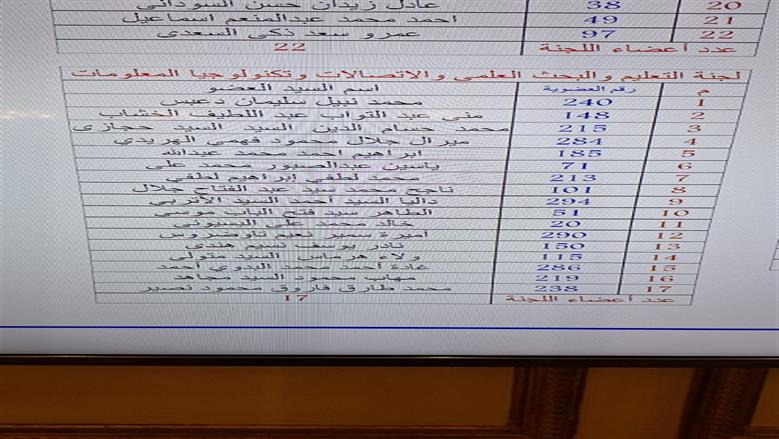 20 38 عادل زيدان حسن السوداني
21 49 احمد محمد عبدالمنعم اسماعيل
22 97 عمرو سعد ذكى السعدى
عدد أعضاء اللجنة 22
لجنة التعليم والبحث العلمى والاتصالات وتكنولوجيا المعلومات
م رقم العضوية اسم السيد العضو
1 240 محمد نبيل سليمان دعبس
2 148 منى عبد التواب عبد اللطيف الخشاب
3 215 محمد حسام الدين السيد السيد حجازى
4 284 ميرال جلال محمود فهمي الهريدي
5 185 ابراهيم احمد محمد عبدالله
6 71 ياسين عبدالصبور محمد على
7 213 محمد لطفي إبراهيم لطفي
8 101 ناجح محمد سيد عبد الفتاح جلال
9 294 داليا السيد أحمد السيد الأتربي
10 51 الطاهر سيد فتح الباب موسي
11 20 خالد محمد على البسيوني
12 290 أميرة سمير نعيم تاوضروس
13 150 نادر يوسف نسيم هندي
14 115 ولاء هرماس السيد متولى
15 286 غادة احمد محمد البدوي أحمد
16 219 مهاب محمود السيد مجاهد
17 238 محمد طارق فاروق محمود نصير
عدد أعضاء اللجنة 17